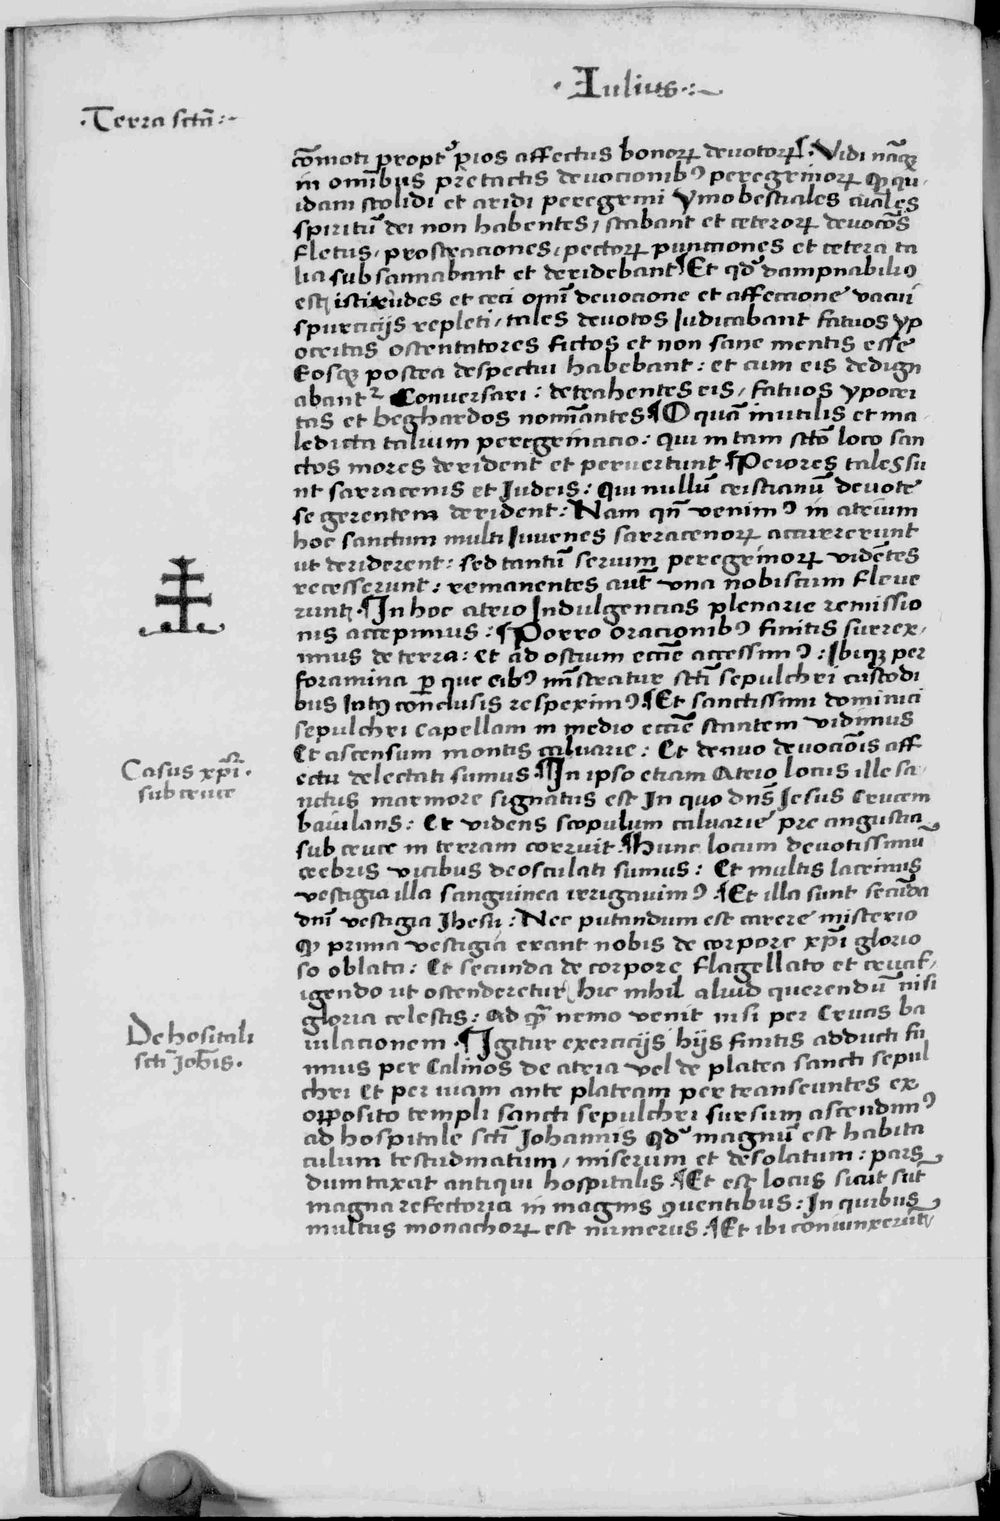 ·Iulius·:~
·Terra sctā:~
cōmoti propt᷒ pios affectus bonoꝝ deuotoꝝ: Vidi nāqꝫ
in omībus pretactis deuocionibꝰ peregrinoꝝ qꝫ qu-
idam stolidi et aridi peregrini ymo bestiales
spiritū dei non habentes, stabant et ceteroꝝ deuocōs
fletus, prostraciones, pectoꝝ punctiones et cetera ta
lia subsannabant et deridebant ¶Et qd᷒ dampnabiliꝰ
est, isti rudes et ceci omī deuocione et affectione vacui
spurcicijs repleti, tales deuotos Iudicabant fatuos yp
ocritas ostentatores fictos et non sane mentis esse
Eosqꝫ postea despectui habebant: et cum eis dedign
abantᷣ Conuersari: detrahentes eis, fatuos ypocri
tas et beghardos nomīantes ¶O quā inutilis et ma
ledicta talium peregrinacio: qui in tam sctō loco san
ctos mores derident et peruertunt ¶Peiores tales su
nt sarracenis et Iudeis: Qui nullū cristianū deuote
se gerentem derident: Nam qn̄ venimꝰ in atrium
hoc sanctum multi Iuuenes sarracenoꝝ accurrerunt
ut deriderent: sed tantū seruum peregrinoꝝ vidētes
recesserunt: remanentes aut̄ vna nobiscum fleue
runt, ¶In hoc atrio Indulgencias plenarie remissio
nis accepimus: ¶Porro oracionibꝰ finitis surrex-
imus de terra: et ad ostium eccīe accessimꝰ: Ibiqꝫ per
foramina ꝑ que cibꝰ mīstratur sctī sepulchri custodi
bus Intꝰ conclusis respeximꝰ ¶Et sanctissimi dominici
sepulchri capellam in medio eccīe stantem vidimus
Et ascensum montis caluarie: Et denuo deuociōis aff
ectu delectati sumus ¶In ipso etiam Atrio locus ille sa
nctus marmore signatus est In quo dn̄s Jesus Crucem
baiulans: Et videns scopulum caluarie pre angustia
sub cruce in terram corruit ¶Hunc locum deuotissimū
crebris vicibus deosculati sumus: Et multis lacrimis
vestigia illa sanguinea irrigauimꝰ: ¶Et illa sunt secūda
dnī vestigia Ihesu: Nec putandum est carere misterio
qꝫ prima vestigia erant nobis de corpore xp̄i glorio
so oblata: Et secunda de corpore flagellato et crucif-
igendo ut ostenderetur hic nihil aliud querendū nisi
gloria celestis: Ad qm̄ nemo venit nisi per Crucis ba
iulacionem ·¶Igitur exercicijs hijs finitis adducti fu
imus per Calinos de atria vel de platea sancti sepul
chri Et per uiam ante plateam per transeuntes ex
opposito templi sancti sepulchri sursum ascendimꝰ
ad hospitale sctī Johannis qd᷒ magnū est habita
culum testudinatum, miserum et desolatum: pars
dumtaxat antiqui hospitalis ¶Et est locus sicut sūt
magna refectoria in magnis ꝯuentibus: In quibus
multus monachoꝝ est numerus: ¶Et ibi coniunxerūt
Casus xp̄i·
sub cruce
De hositali
sctī Joh̄is.